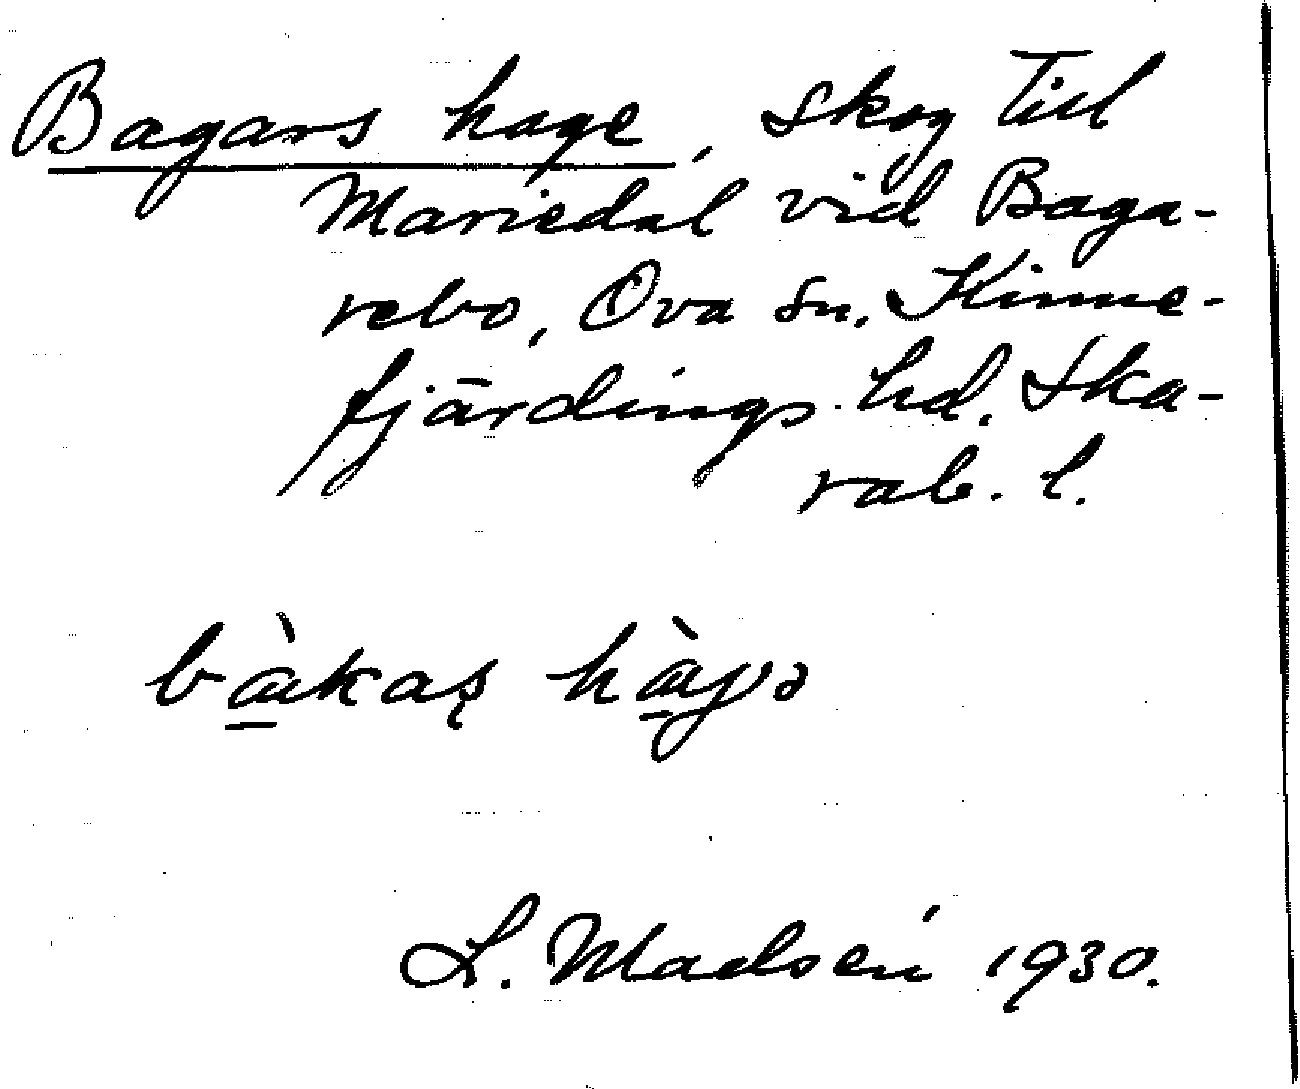 Bagars hage, skog till
Mariedal vid Baga-
rebo, Ova sn. Kinne-
fjärdings hd. Ska-
rab. l.
bàkaʂ hàɣə
L. Madsén 1930.